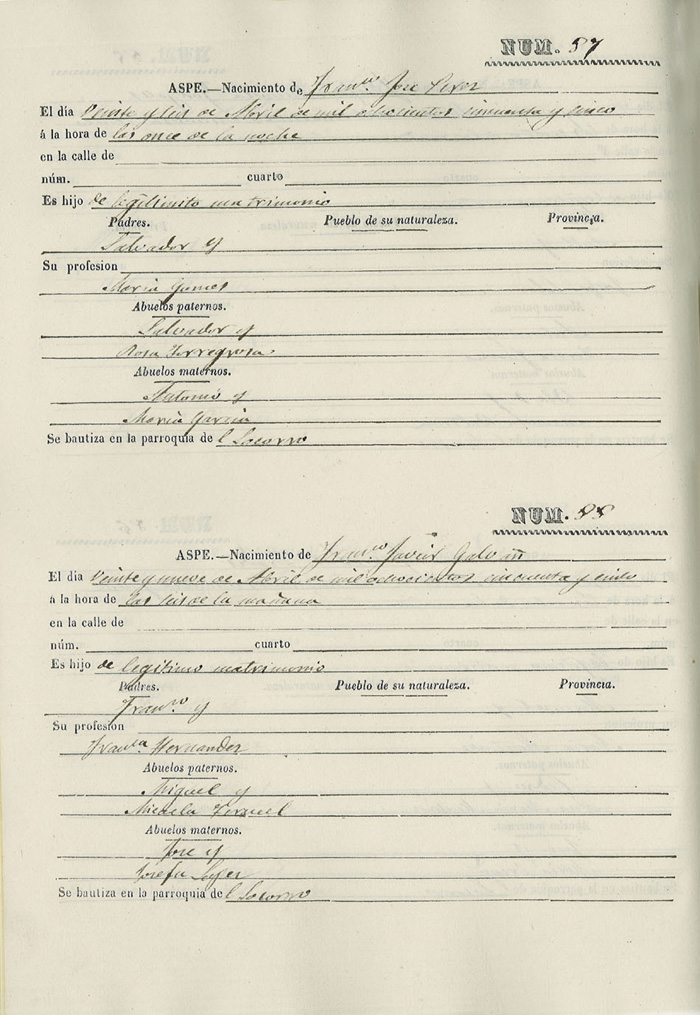 NUM. 87
ASPE.—Nacimiento de Fran.co Jose Perez
El día Veinte y seis de Abril de mil ochocientos cincuenta y cinco
á la hora de las once de la noche
en la calle de
núm. cuarto
Es hijo de legitimo matrimonio
Padres. Pueblo de su naturaleza. Provincia.
Salvador y
Su profesion
Maria Gomes
Abuelos paternos.
Salvador y
Rosa Torregrosa
Abuelos maternos.
Antonio y
Maria Garcia
Se bautiza en la parroquia de l Socorro
NUM. 88
ASPE.—Nacimiento de Fran.co Javier Galvañ
El dia Veinte y nueve de Abril de mil ochocientos cincuenta y cinco
á la hora de las seis de la mañana
en la calle de
núm. cuarto
Es hijo de legitimo matrimonio
Padres. Pueblo de su naturaleza. Provincia.
Fran.co y
Su profesion
Fran.ca Hernandez
Abuelos paternos.
Miguel y
Micaela
Abuelos maternos.
Jose y
Josefa
Se bautiza en la parroquia de l Socorro